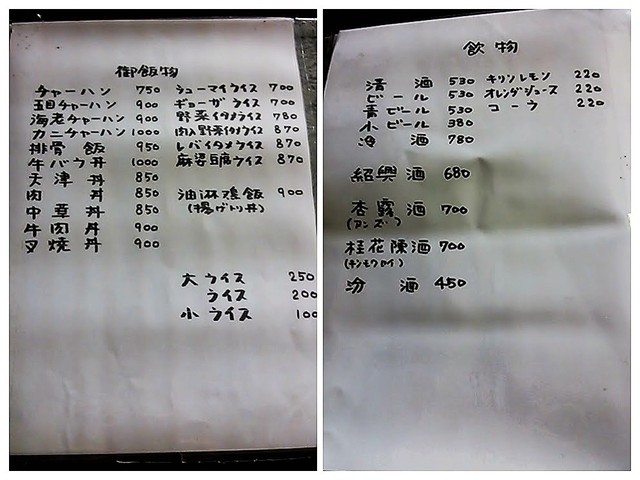 御飯物
チャーハン 750
五目チャーハン 900
海老チャーハン 900
カニチャーハン 1000
排骨飯 950
牛バラ丼 1000
天津丼 850
肉丼 850
中華丼 850
牛肉丼 900
叉焼丼 900
シューマイライス 700
ギョーザライス 700
野菜イタメライス 780
肉入野菜イタメライス 870
レバイタメライス 870
麻婆豆腐ライス 870
油淋鶏飯 900
(揚げトリ丼)
大ライス 250
ライス 200
小ライス 100
飲物
清酒 530
ビール 530
生ビール 530
小ビール 380
酒 780
紹興酒 680
杏露酒 700
(アンズ)
桂花陳酒 700
(キンモクセイ)
汾酒 450
キリンレモン 220
オレンヂジュース 220
コーラ 220